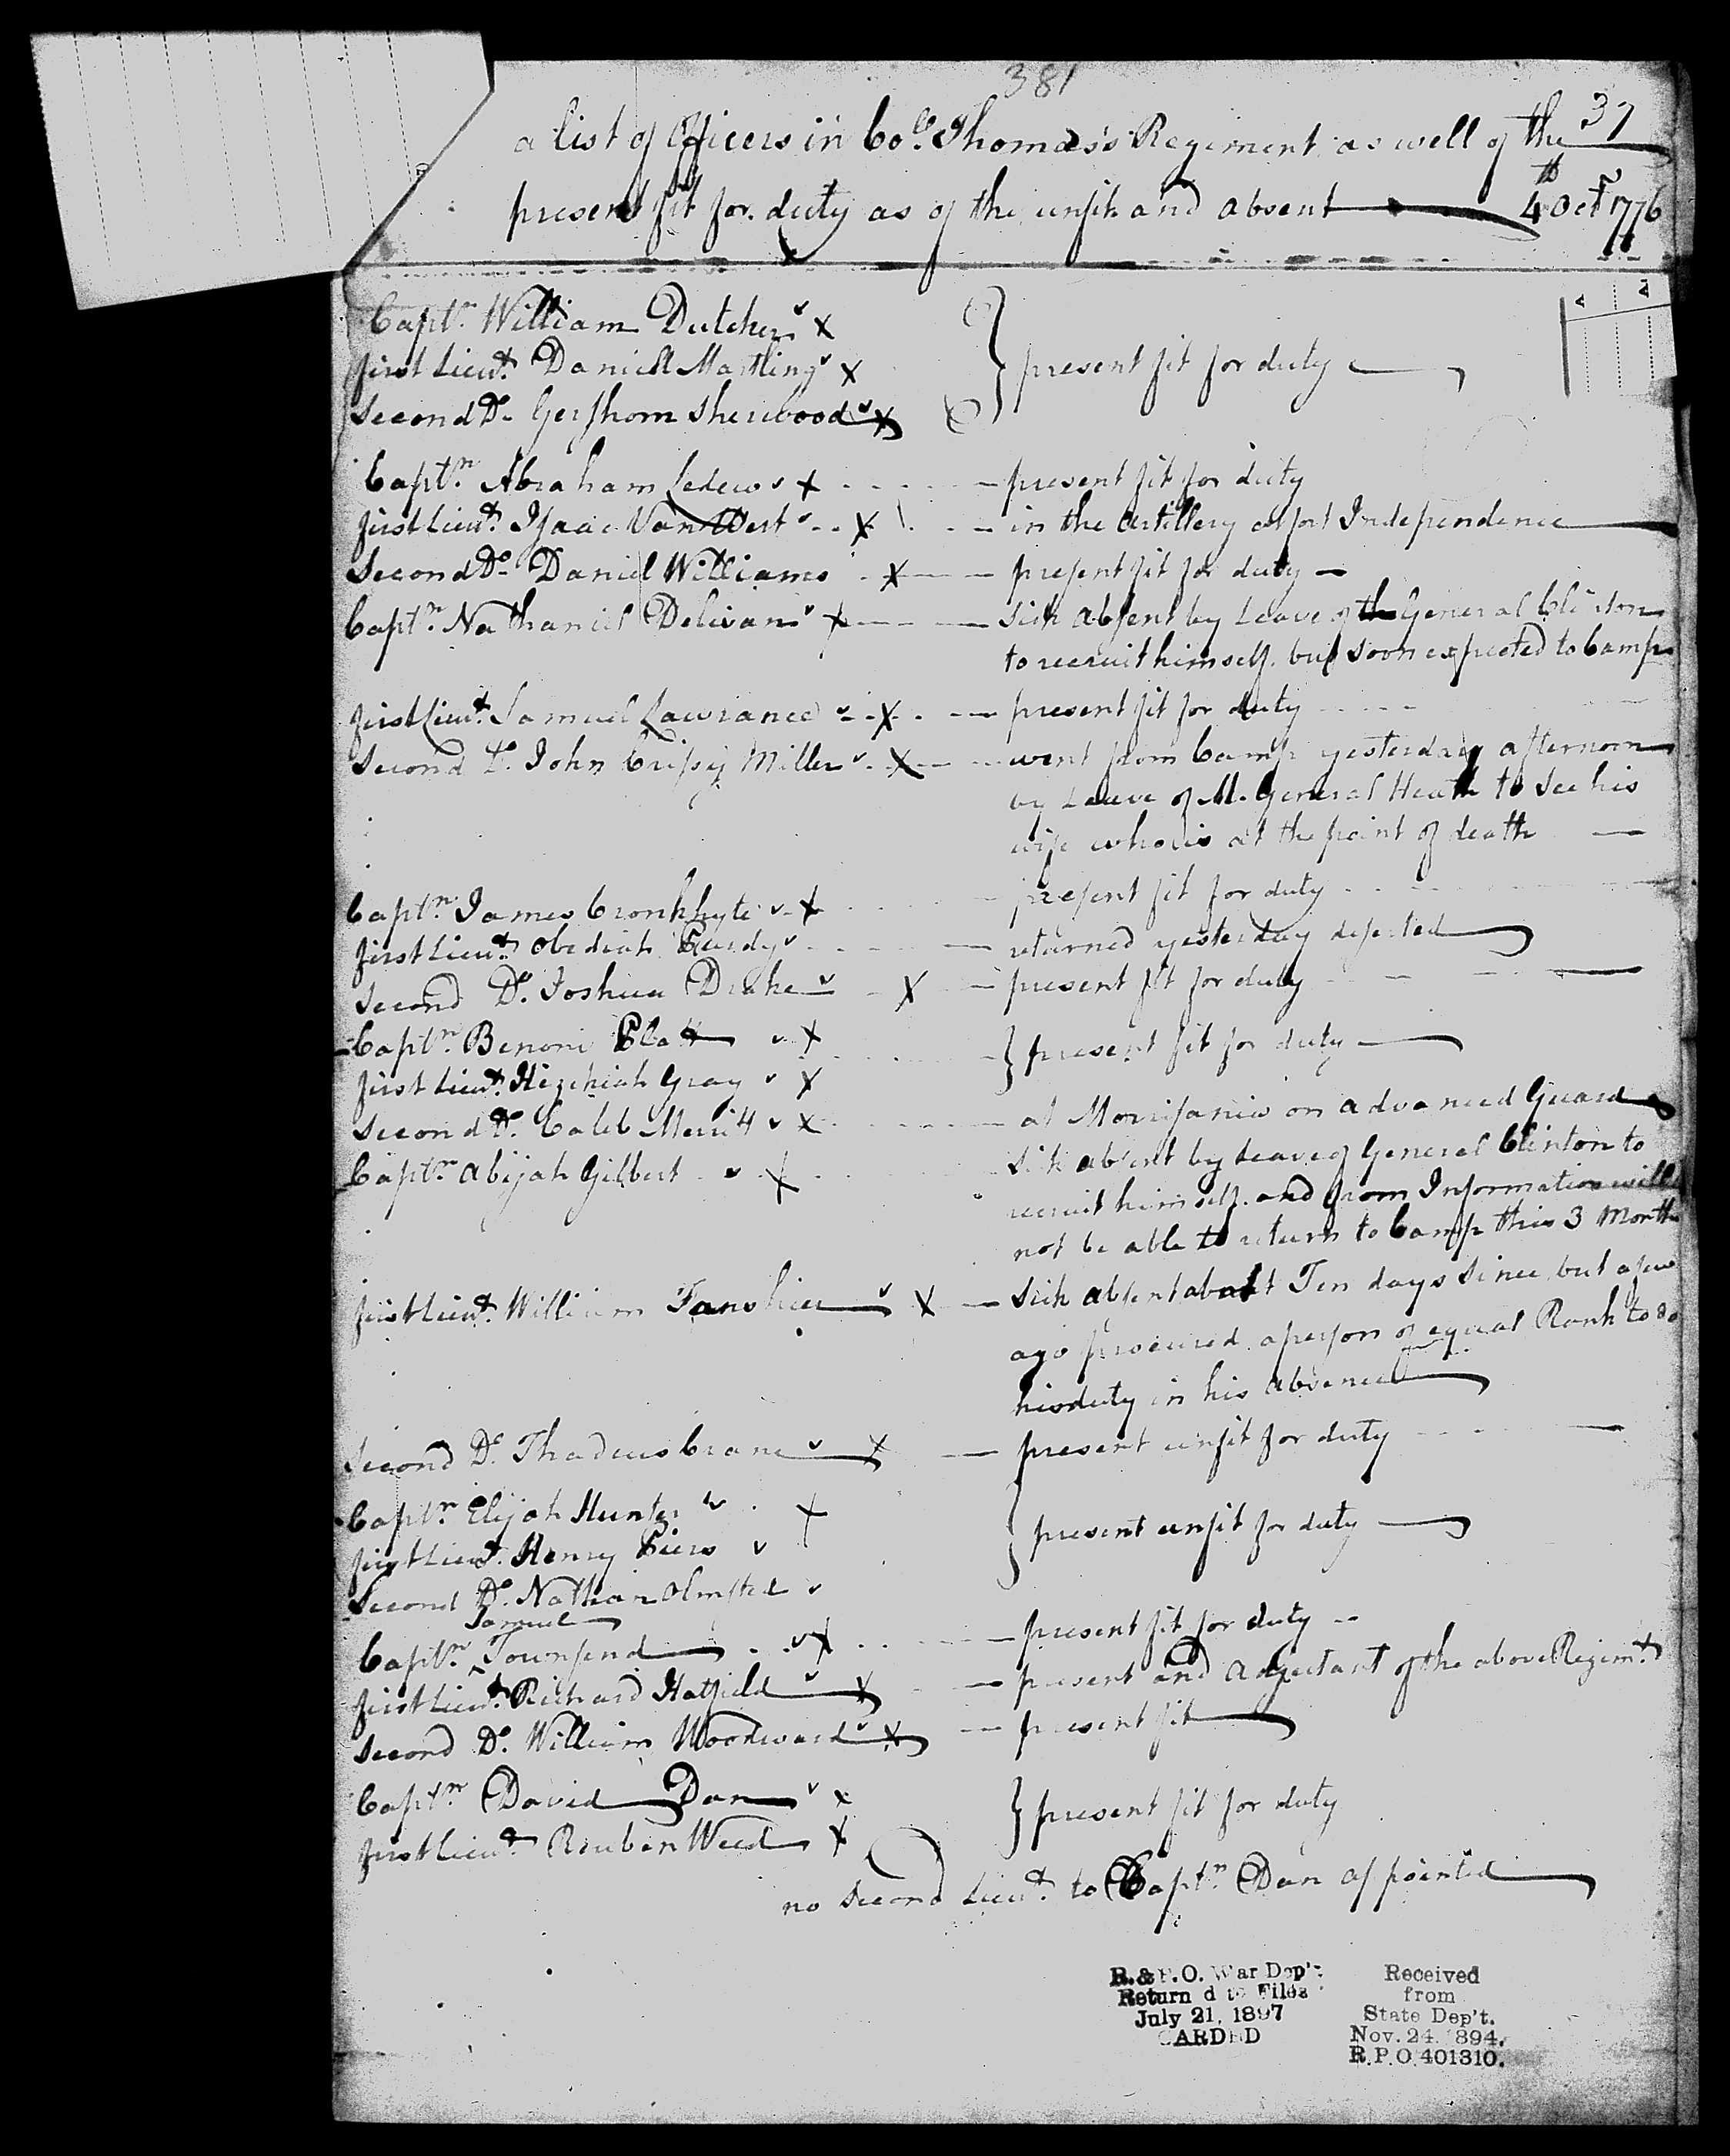 381
37
a list of Officers in Coll. Thomas's Regiment as well of the
present fit for duty as of the unfit and absent 4th Octr 1776
Captn. William Dutcher v x
first Lieut. Daniell Martling v x } present fit for duty
Second Do. Gershom Sherwood v x
Captn. Abraham Ledew v x present fit for duty
first Lieut. Isaac Van Wert v x in the artillery at fort Independence
Second Do. Daniel Williams x present fit for duty
Captn. Nathaniel Delivan v x sick absent by Leave of the General Clinton
to recruit himself. but soon expected to Camp
first Lieut. Samuel Lawrance v x present fit for duty
Second Do. John Cripsy Miller v x went from Camp yesterday afternoon
by Leave of M. General Heath to see his
wife who is at the point of death
Captn. James Cronkhyte v x present fit for duty
first Lieut. Obediah Purdy v returned yesterday deserted
Second Do. Joshua Drake v x present fit for duty
Captn. Benoni Platt v x } present fit for duty
first Lieut. Hezekiah Gray v x
Second Do. Caleb Merritt v x at Morrisania on advanced Guard
Captn. Abijah Gilbert v x sick absent by leave of General Clinton to
recruit himself. and from Information will
not be able to return to Camp this 3 Month
first Lieut. William Fansher v x sick absent about Ten days since but a few
ago procured a person of equal Rank to do
his duty in his absence
Second Do. Thadeus Crane v x present unfit for duty
Captn. Elijah Hunter v x
first Lieut. Henry Piers v } present unfit for duty
Second Do. Nathan Olmsted v
Samuel
Captn. ^ Townsend v x present fit for duty
first Lieut. Richard Hatfield v x present and Adjectant of the above Regimt.
Second Do. William Woodward v x present fit
Captn. David Dan v x } present fit for duty
first Lieut. Reuben Weed x
no second Lieut. to Captn. Dan appointed
R. & P. O. War Dep't.
Return d to Files
July 21, 1897
CARDED
Received
from
State Dep't.
Nov. 24. 1894.
R. P. O. 401310.